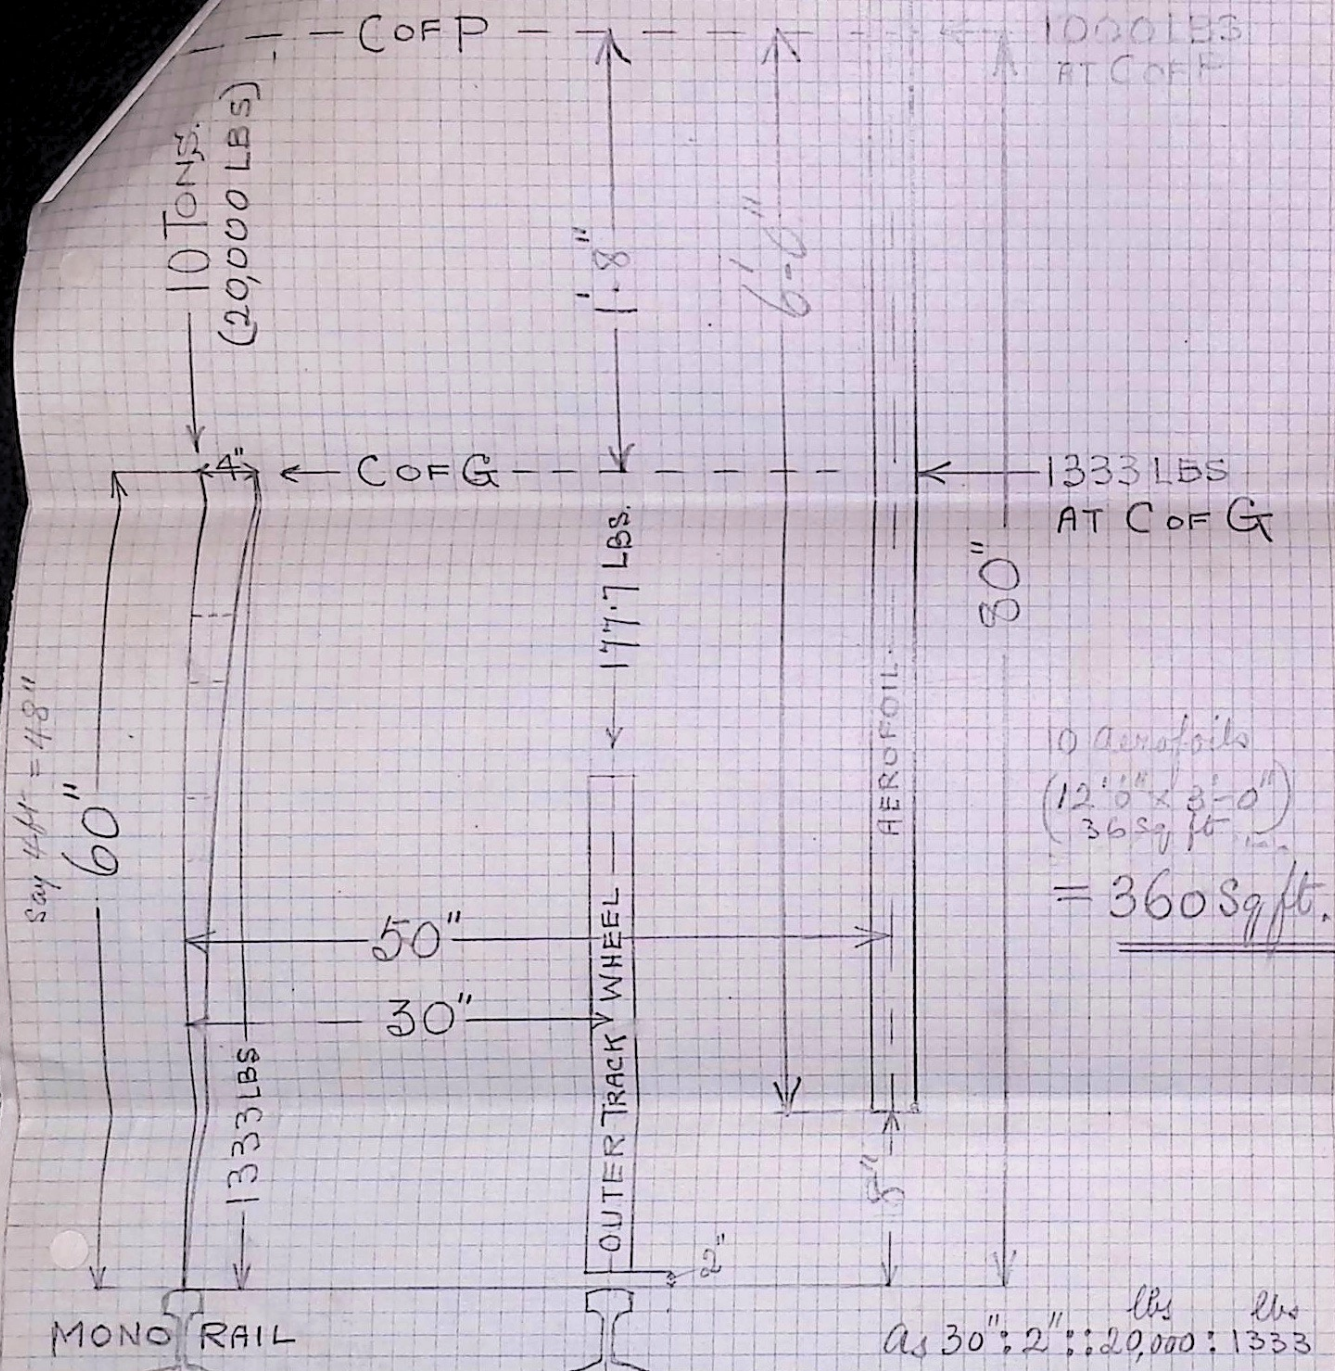 C OF P
1000 LBS
AT C OF P
10 TONS.
(20,000 LBS)
1'.8"
6'-6"
4"
C OF G
1333 LBS
AT C OF G
177.7 LBS.
80"
Say 4ft = 48"
60"
AEROFOIL
10 aerofoils
(12'0" x 3'-0")
36 sq ft
= 360 Sq ft.
50"
30"
OUTER TRACK WHEEL
1333 LBS
8"
2"
MONO RAIL
lbs lbs
As 30" : 2" :: 20,000 : 1333